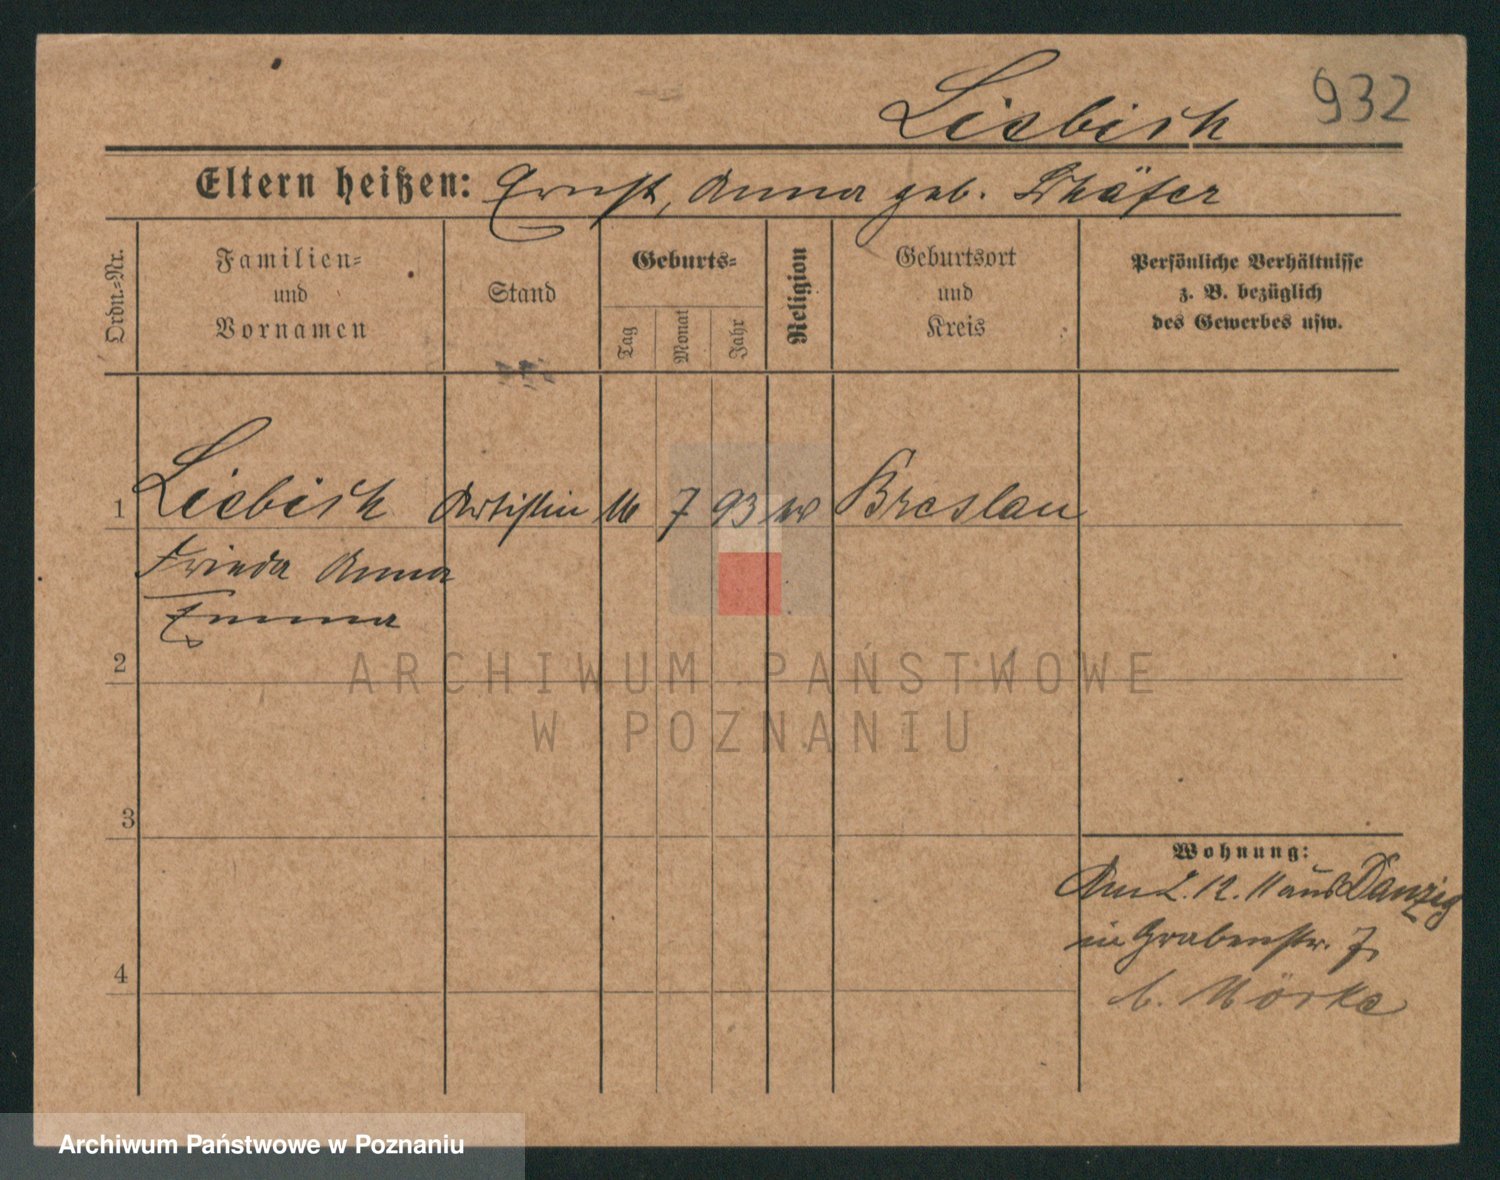 Liebich 932
Eltern heißen: Ernst, Anna geb. Schäfer
Ordn.-Nr.
Familien-
und
Vornamen
Stand
Geburts-
Tag
Monat
Jahr
Religion
Geburtsort
und
Kreis
Persönliche Verhältnisse
z. B. bezüglich
des Gewerbes usw.
1 Liebich Artistin 16 7 93 Breslau
Frieda Anna
Emma
2
ARCHIWUM PAŃSTWOWE
W POZNANIU
3
Wohnung:
Am 2. 12. 11 aus Danzig
in Grabenstr. 7
b. Mörke
4
Archiwum Państwowe w Poznaniu